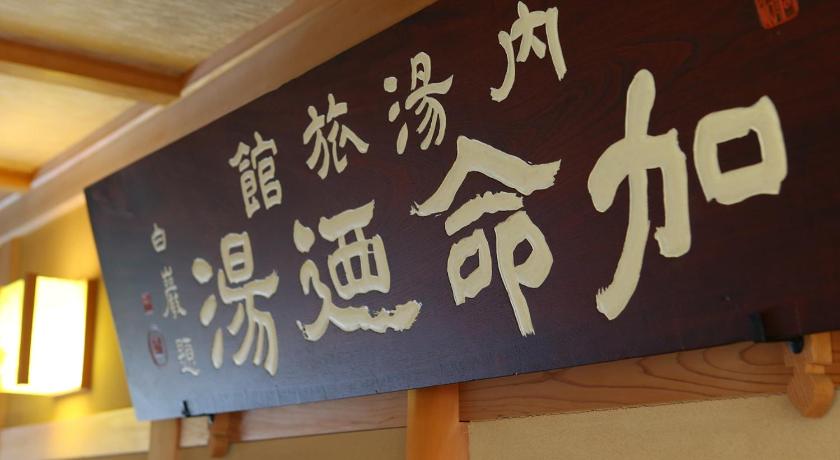 内湯旅館
加命迺湯
白巌